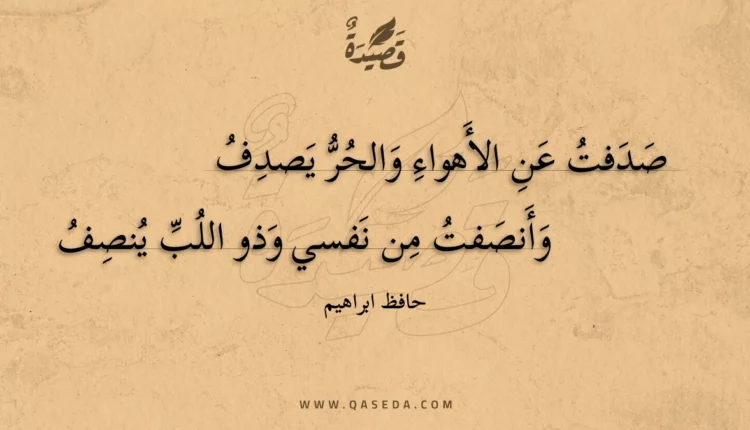 قَصِيْدَةٌ
صَدَفتُ عَنِ الأَهواءِ وَالحُرُّ يَصدِفُ
وَأَنصَفتُ مِن نَفسي وَذو اللُبِّ يُنصِفُ
حافظ ابراهيم
WWW.QASEDA.COM